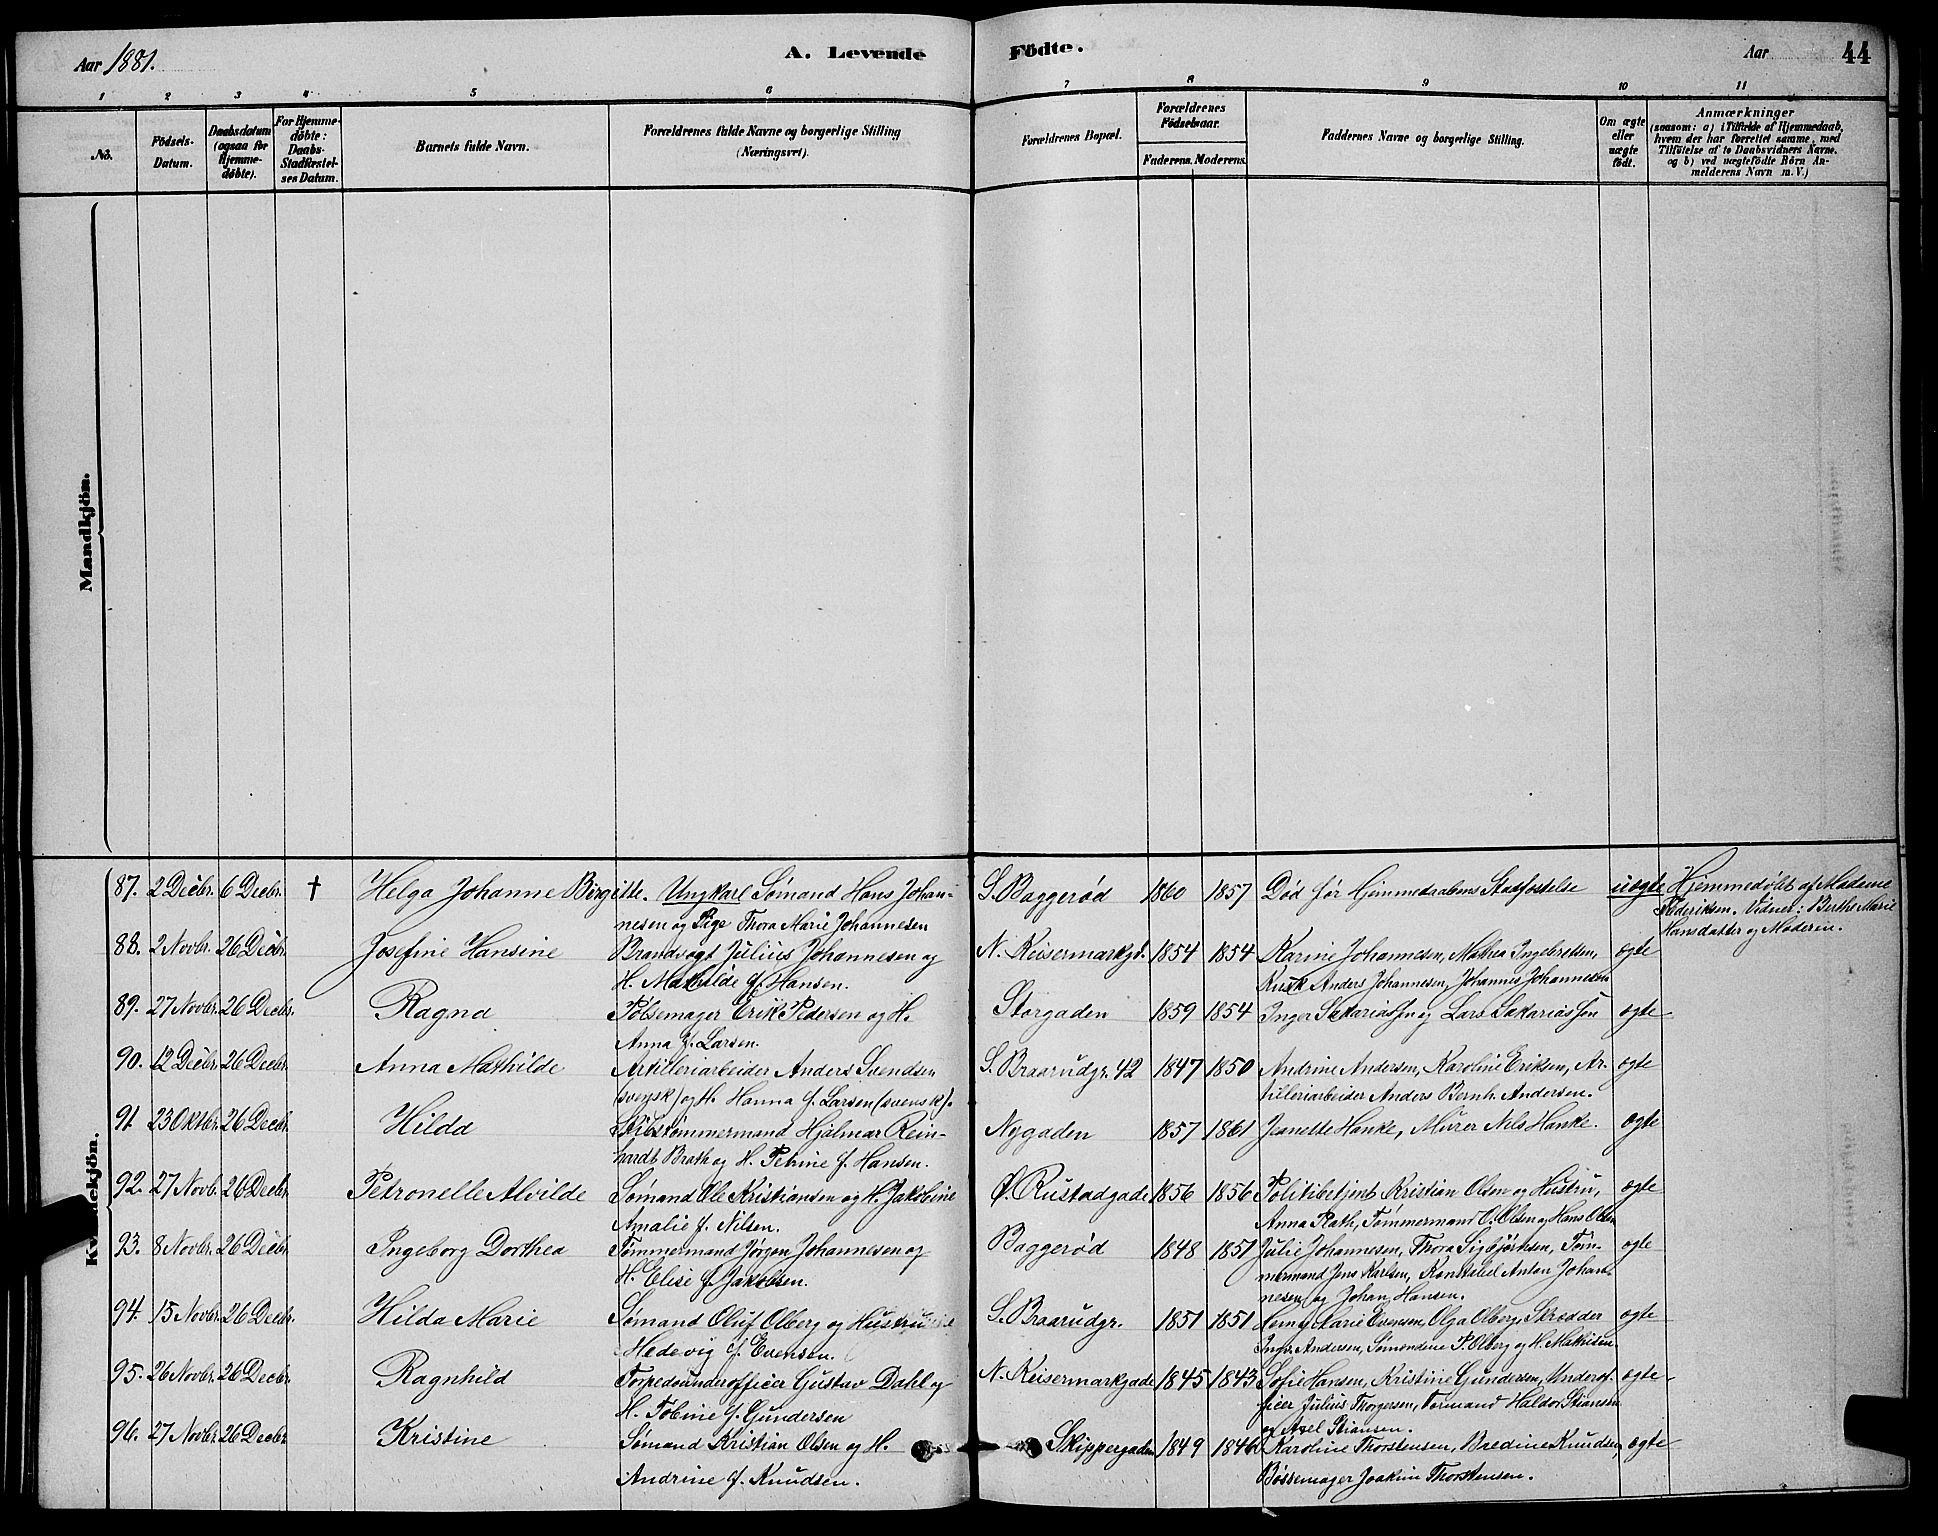 Aar 1881.
A. Levende
Födte.
Aar
44
1 2 3 4 5 6 7 8 9 10 11
No.
Födsels-
Datum.
Daabsdatum
(ogsaa for
Hjemme-
döbte).
For Hjemme-
döbte:
Daabs-
Stadfæstel-
ses Datum.
Barnets fulde Navn.
Forældrenes fulde Navne og borgerlige Stilling
(Næringsvei).
Forældrenes Bopæl.
Forældrenes
Födselsaar.
Faderens. Moderens.
Faddernes Navne og borgerlige Stilling.
Om ægte
eller
uægte
födt.
Anmærkninger
(saasom: a) i Tilfælde af Hjemmedaab,
hvem der har forrettet samme, med
Tilföielse af to Daabsvidners Navne.
og b) ved uægtefödte Börn An-
melderens Navn m.V.)
Mandkjön.
Kvindekjön.
87. 2 Decbr. 6 Decbr. † Helga Johanne Birgitte. Ungkarl Sømand Hans Johan-
nesen og Pige Thora Marie Johannesen
S. Baggerød 1860 1857 Død før Hjemmedaabens Statfæstelse uægte Hjemmedöbt af Madame
Frederiksen. Vidner: Berthe Marie
Hansdatter og Moderen.
88. 2 Novbr. 26 Decbr. Josefine Hansine Brandvagt Julius Johannesen og
H. Mathilde f. Hansen.
N. Keisermarkgd. 1854 1854 Karine Johannesen, Mathea Ingebretsen, ægte
Kusk Anders Johannesen, Johannes Johannesen
89. 27 Novbr. 26 Decbr. Ragna Pølsemager Erik Pedersen og H.
Anna f. Larsen.
Storgaden 1859 1854 Inger Sakariassen og Lars Sakariassen ægte
90. 12 Decbr. 26 Decbr. Anna Mathilde Artilleriarbeider Anders Svendsen
(svensk) og H. Hanna f. Larsen (svensk).
S. Braarudgr. 42 1847 1850 Andrine Andersen, Karoline Eriksen, Ar- ægte
tilleriarbeider Anders Bernh. Andersen.
91. 23 Oktbr. 26 Decbr. Hilda Skibstømmermand Hjalmar Rein-
hardt Brath og H. Petrine f. Hansen.
Nygaden 1857 1861 Jeanette Hanke, Murer Nils Hanke. ægte
92. 27 Novb. 26 Decbr. Petronelle Alvilde Sømand Ole Kristiansen og H. Jakobine
Amalie f. Nilsen.
Ø. Rustadgade 1856 1856 Politibetjent Kristian Olsen og Hustru, ægte
Anna Rath, Tømmermand O. Olsen og Hans Olsen
93. 8 Novbr. 26 Decbr. Ingeborg Dorthea Tømmermand Jørgen Johannesen og
H. Elise f. Jakobsen.
Baggerød 1848 1851 Julie Johannesen, Thora Sigbjörnsen, Tøm- ægte
mermand Jens Karlsen, Konstabel Anton Johan-
nesen og Johan Hansen.
94. 15 Novbr. 26 Decbr. Hilda Marie Sømand Oluf Olberg og Hustru
Hedevig f. Evensen.
S. Braarudgr. 1851 1851 Marie Evensen, Olga Olberg, Skrædder ægte
Andersen, Sømændene P. Olberg og H. Mathisen
95. 26 Novbr. 26 Decbr. Ragnhild Torpedounderofficer Gustav Dahl og
H. Tobine f. Gundersen
N. Keisermarkgade 1845 1843 Sofie Hansen, Kristine Gundersen, Underof- ægte
ficer Julius Thorgersen, Formand Haldor Stiansen
og Axel Stiansen.
96. 27 Novbr. 26 Decbr. Kristine Sømand Kristian Olsen og H.
Andrine f. Knudsen.
Skippergaden 1849 1846 Karoline Thorstensen, Bredine Knudsen, ægte
Bøssemager Joakim Thorstensen.